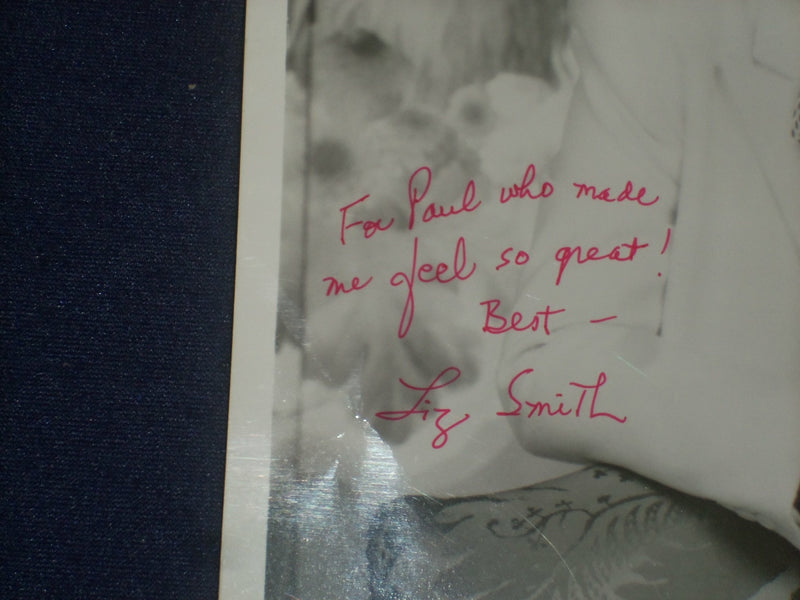 For Paul who made
me feel so great!
Best —
Liz Smith